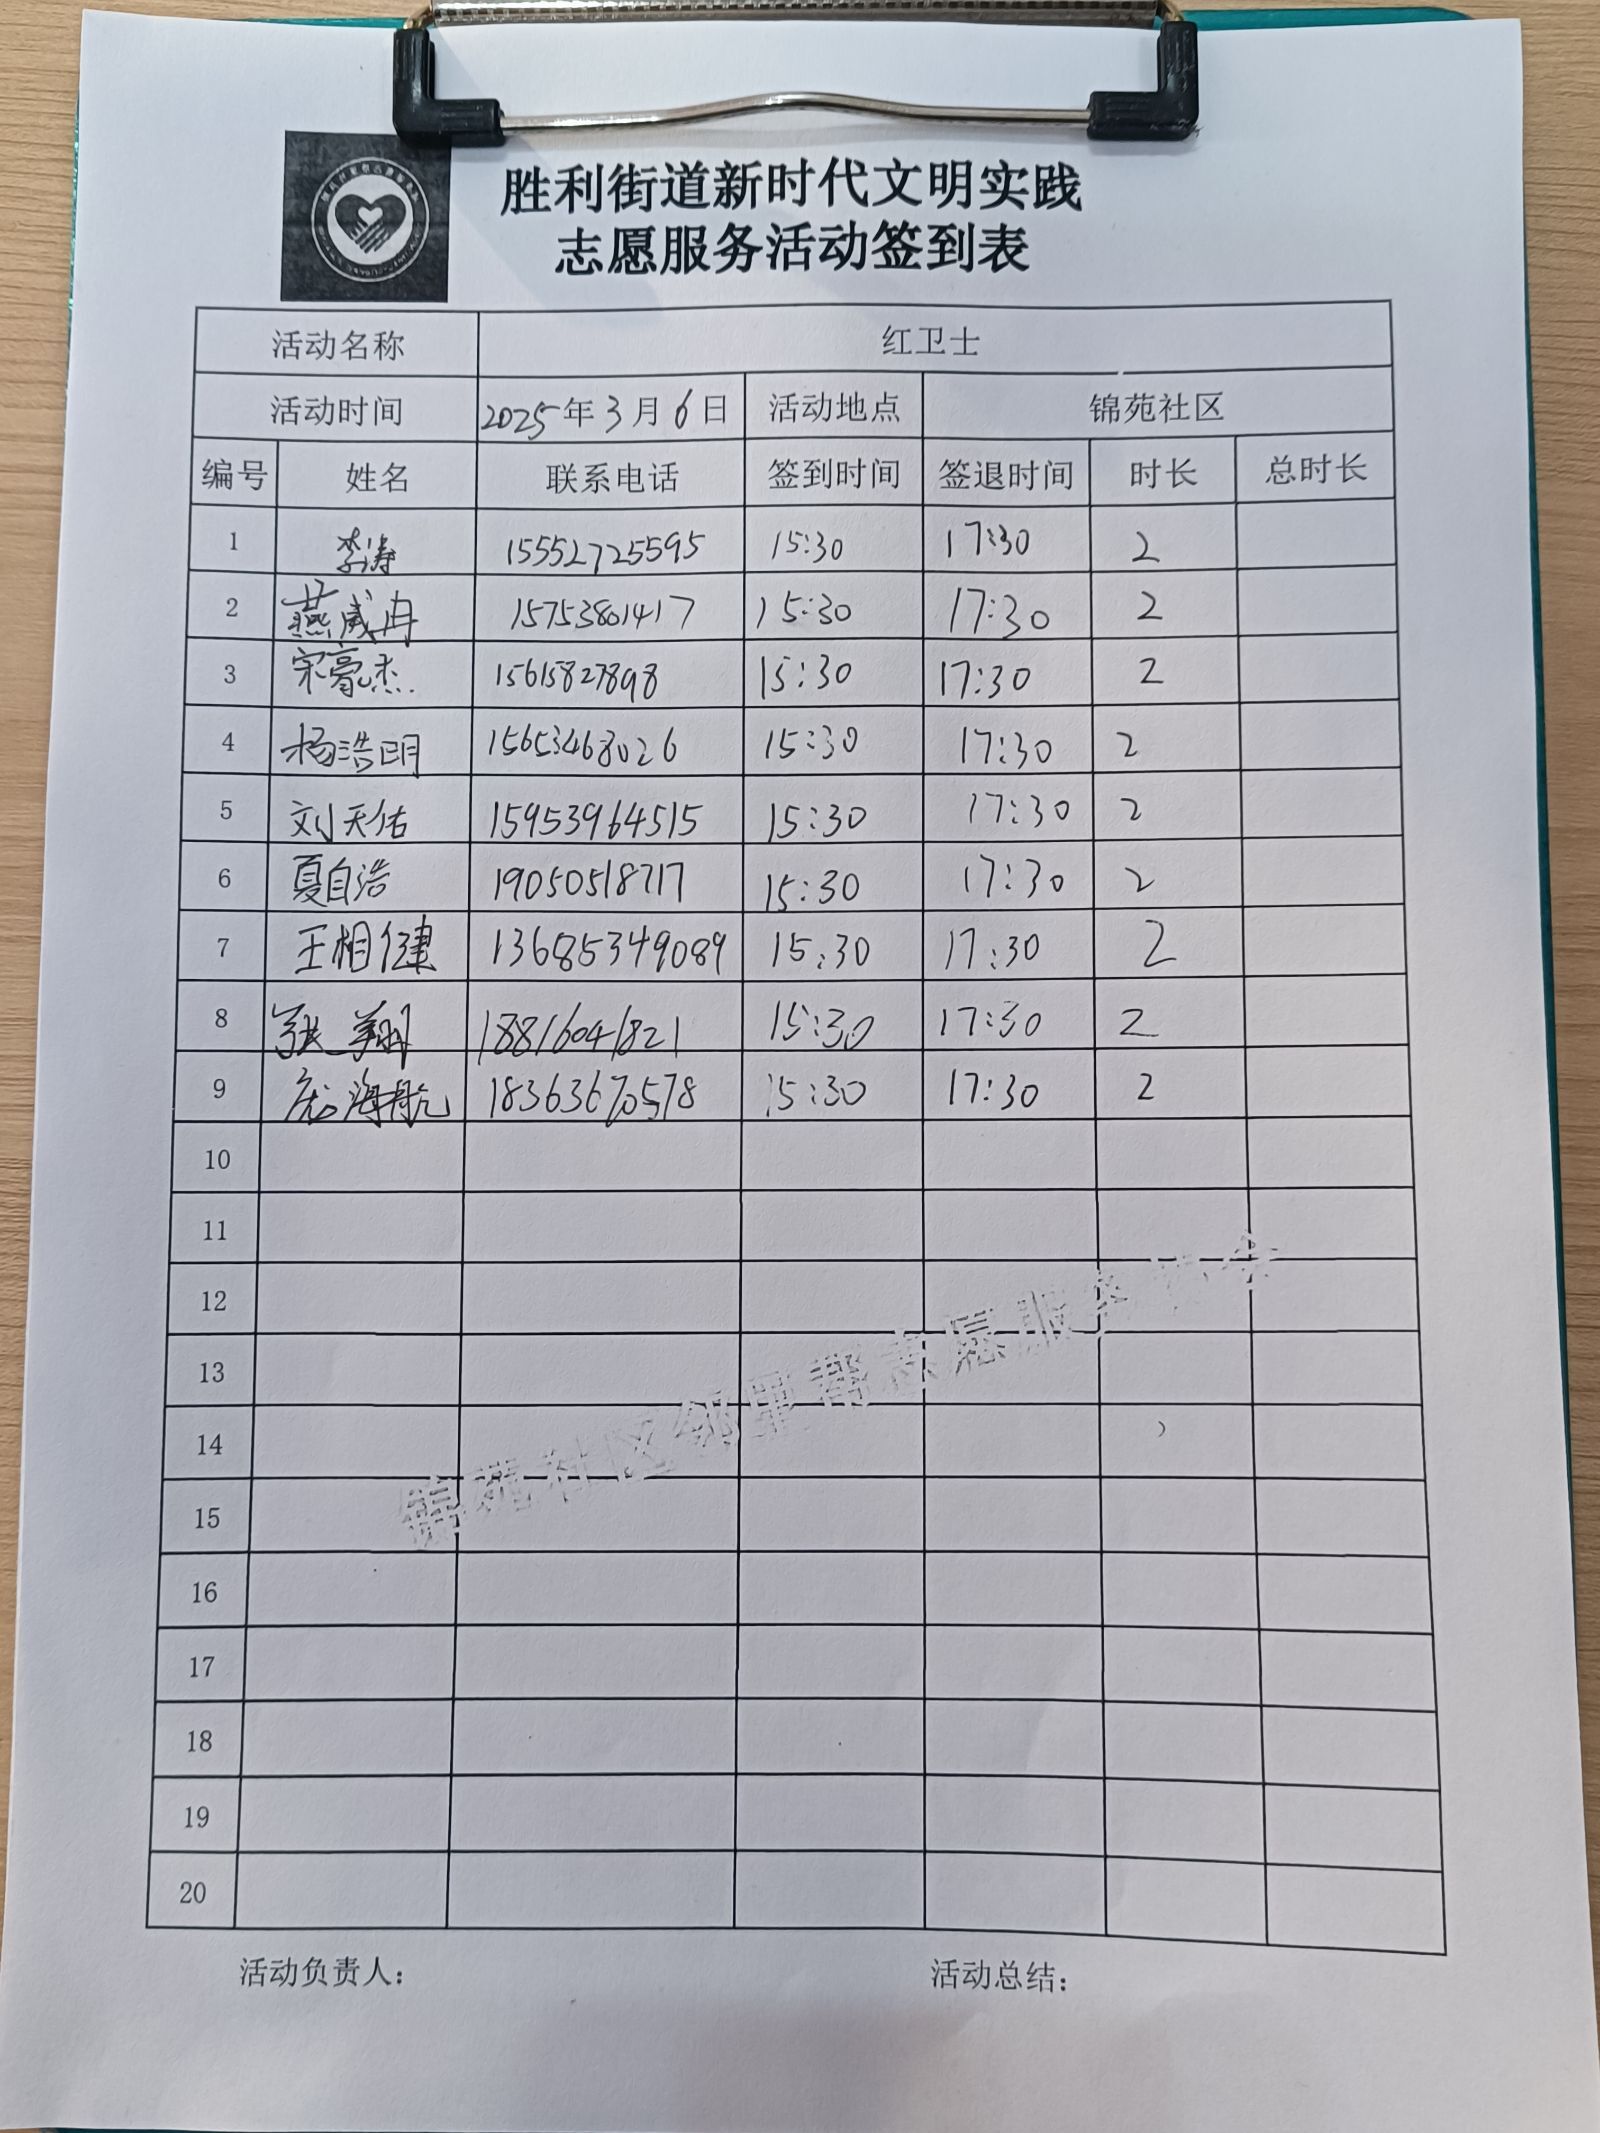 胜利街道新时代文明实践
志愿服务活动签到表
活动名称 红卫士
活动时间 2025年3月6日 活动地点 锦苑社区
编号 姓名 联系电话 签到时间 签退时间 时长 总时长
1 李涛 15552725595 15:30 17:30 2
2 燕威冉 15753801417 15:30 17:30 2
3 宋豪杰 15615827898 15:30 17:30 2
4 杨浩明 15653468026 15:30 17:30 2
5 刘天佑 15953964515 15:30 17:30 2
6 夏自浩 19050518717 15:30 17:30 2
7 王相健 13685349089 15:30 17:30 2
8 张翔 18816041821 15:30 17:30 2
9 海航 18363670578 15:30 17:30 2
10
11
12
13
14
15
16
17
18
19
20
锦苑社区邻里帮志愿服务
活动负责人： 活动总结：